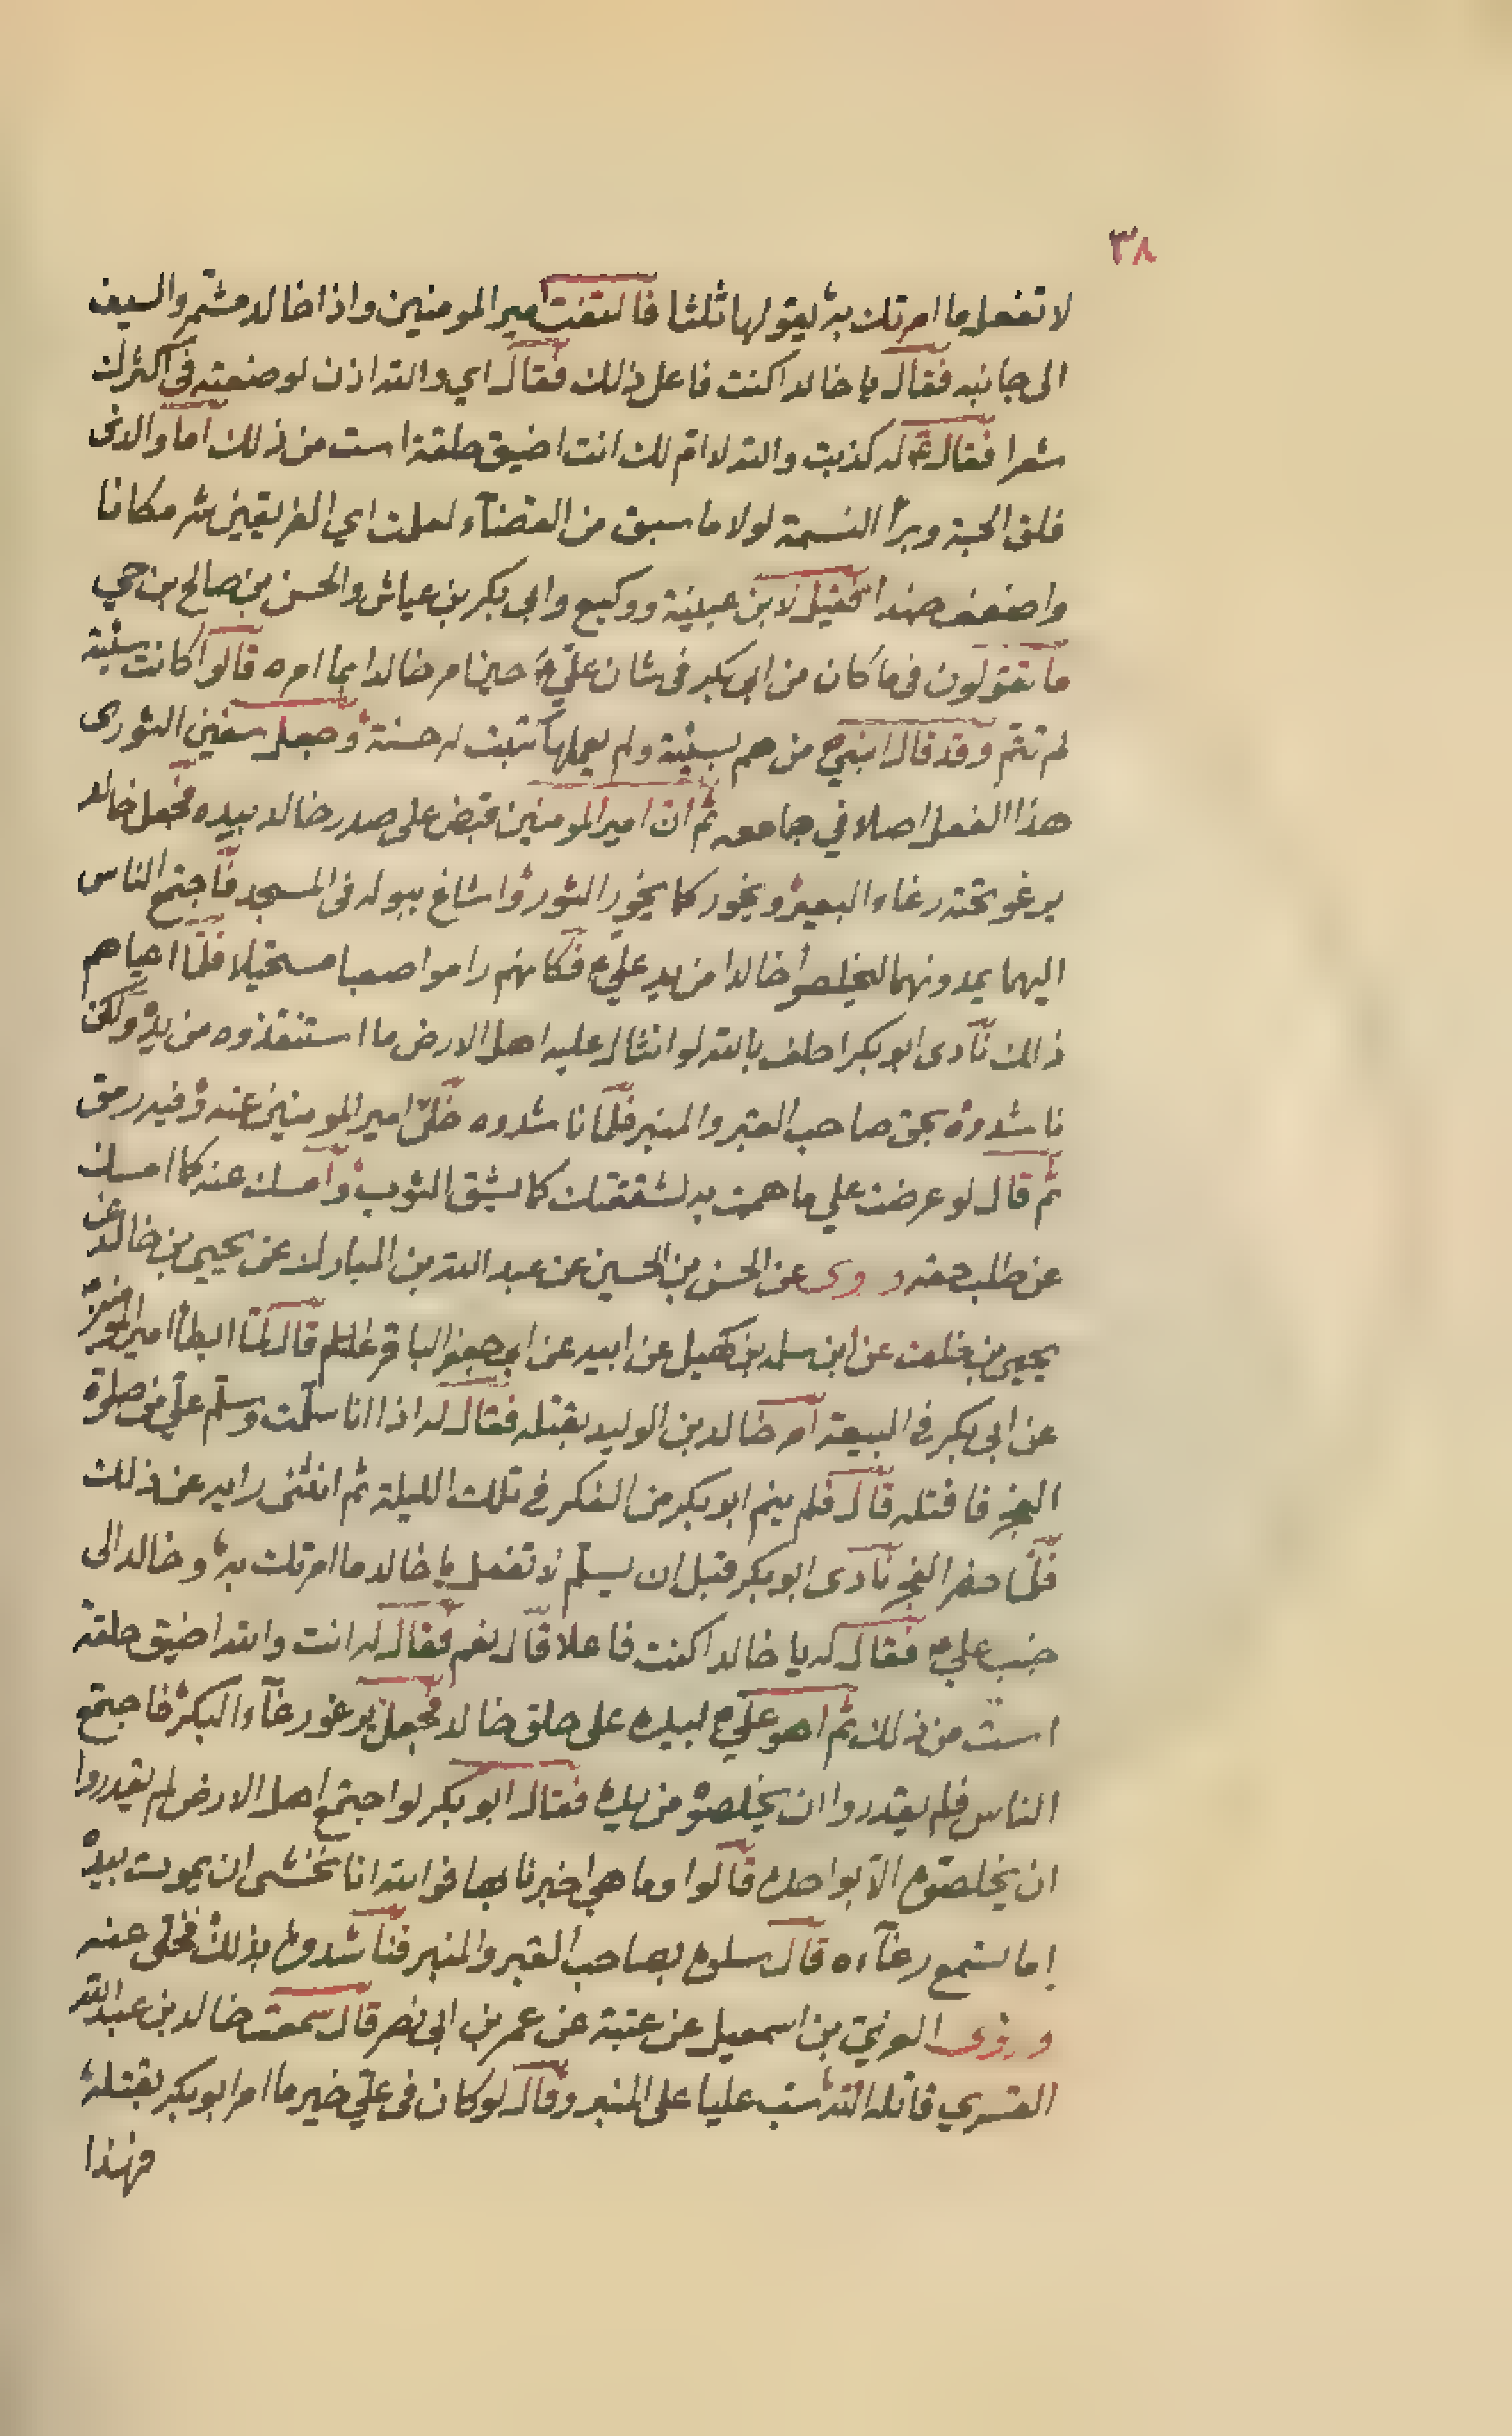 ٣٨
لا تفعل ما امرتك به يقولها ثلثا فالتفت امير المومنين واذا خالد مشمر والسيف
الى جانبه فقال يا خالد اكنت فاعل ذلك فقال اي والله اذن لوضعته في اكثرك
شعرا فقال ع له كذبت والله لا ام لك انت اضيق حلقة است من ذلك اما والذى
فلق الحبة وبرأ النسمة لولا ما سبق من القضآء لعلمت اي الفريقين شر مكانا
واضعف جندا فقيل لابن عيينة ووكيع وابي بكر بن عياش والحسن بن صالح بن حي
ما تقولون فى ما كان من ابي بكر فى شان علي ع حين امر خالدا بما امره قالوا كانت سيئة
لم تتم وقد قال النبي من هم بسيئة ولم يعملها كتبت له حسنة وجعل سفين الثورى
هذا الفعل اصلا في جامعه ثم ان امير المومنين قبض على صدر خالد بيده فجعل خالد
يرغو تحته رغاء البعير ويخور كما يخور الثور واشاغ ببوله فى المسجد فاجتمع الناس
اليهما يمدونهما ليخلصوا خالدا من يد علي ع فكانهم راموا صعبا مستحيلا فلما اعياهم
ذلك نادى ابو بكر احلف بالله لو انثال عليه اهل الارض ما استنقذوه من يده ولكن
ناشدوه بحق صاحب القبر والمنبر فلما ناشدوه خلى امير المومنين عنه وفيه رمق
ثم قال لو عرضت علي ما همت به لشققتك كما يشق الثوب وامسك عنه كما امسك
عن طلب حقه و روى عن الحسن بن الحسين عن عبد الله بن المبارك عن يحيى بن خالد عن
يحيى بن خلف عن ابن سلمه بن كهيل عن ابيه عن ابي جعفر الباقر قال لما ابطأ امير المومنين
عن ابي بكر فى البيعة امر خالد بن الوليد بقتله فقال له اذا انا سلمت وسلم علي من صلوة
الفجر فاقتله قال فلم ينم ابو بكر من الفكر في تلك الليلة ثم انثنى رايه عن ذلك
فلما حضر الفجر نادى ابو بكر قبل ان يسلم لا تفعل يا خالد ما امرتك به وخالد الى
جنب علي ع فقال له يا خالد اكنت فاعلا قال نعم فقال له انت والله اضيق حلقة
است من ذلك ثم اهو علي ع بيده على حلق خالد فجعل يرغو رغآء البكر فاجتمع
الناس فلم يقدروا ان يخلصوه من يده فقال ابو بكر لو اجتمع اهل الارض لم يقدروا
ان يخلصوه الا بواحده قالوا وما هي اخبرنا بها فوالله انا نخشى ان يموت بيده
اما تسمع رغآءه قال سلوه بصاحب القبر والمنبر فناشدوه بذلك فخلى عنه
و روى بن اسمعيل عن عتبة عن عمر بن ابى نصر قال سمعت خالد بن عبد الله
القسري قاتله الله شتب عليا على المنبر وقال لو كان فى علي خير ما امر ابو بكر بقتله
فهذا